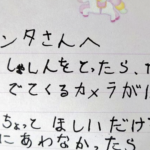 ンタさんへ
しゃしんをとったら、
でてくるカメラが
ちょっと ほしいだけ
にあわなかったら